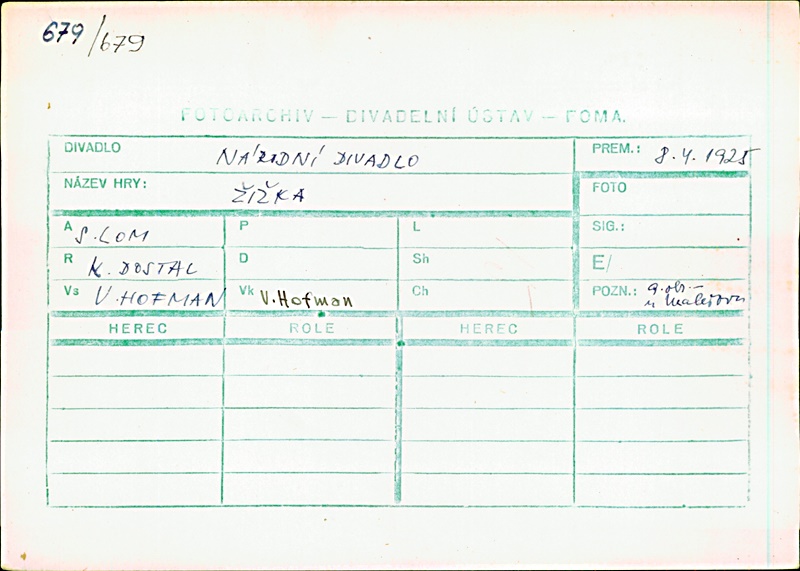 679/679
FOTOARCHIV — DIVADELNÍ ÚSTAV — FOMA.
DIVADLO NÁRODNÍ DIVADLO PREM.: 8.4.1925
NÁZEV HRY: ŽIŽKA FOTO
A S. LOM P L SIG.:
R K. DOSTAL D Sh E/
Vs V. HOFMAN Vk V. Hofman Ch POZN.: 9. obr. –
u Malešova
HEREC ROLE HEREC ROLE